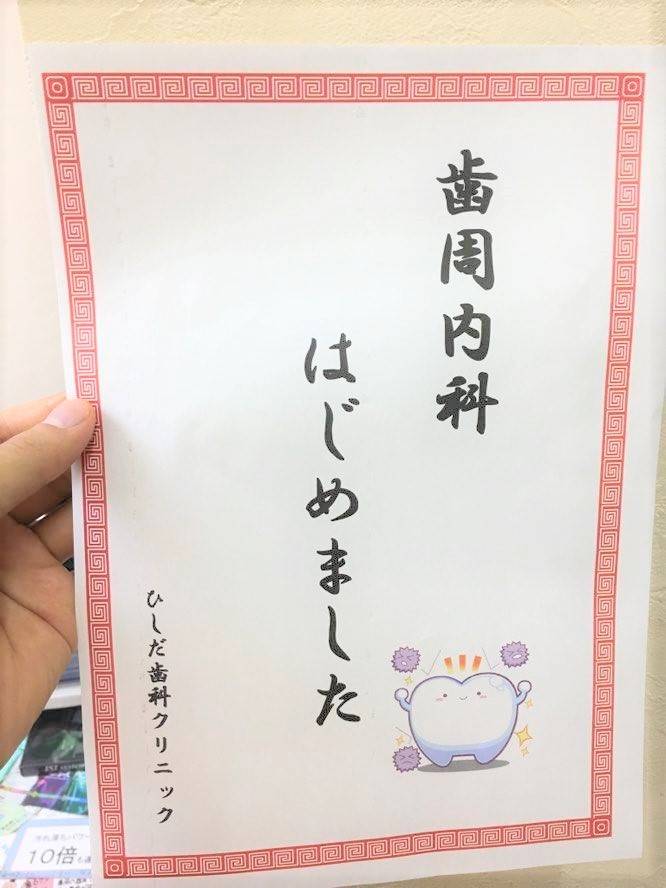 歯周内科
はじめました
ひしだ歯科クリニック
10倍